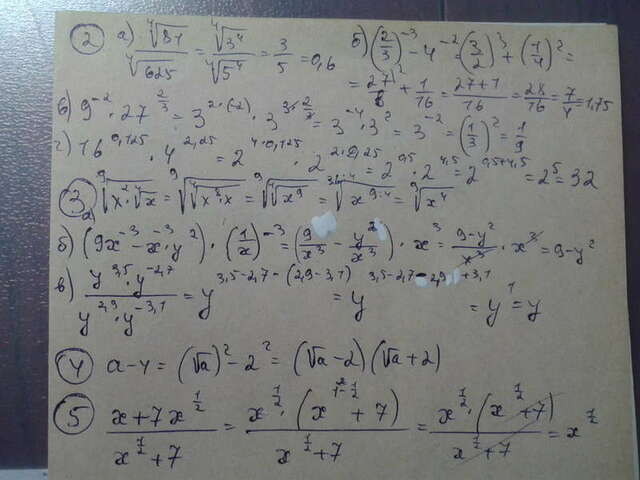 ② а) ⁴√81 / ⁴√625 = ⁴√3⁴ / ⁴√5⁴ = 3/5 = 0,6
б) (2/3)⁻³ - 4⁻² = (3/2)³ + (1/4)² =
= 27/8 + 1/16 = (27+1)/16 = 28/16 = 7/4 = 1,75
в) 9⁻² · 27^(2/3) = 3^(2·(-2)) · 3^(3·2/3) = 3⁻⁴ · 3² = 3⁻² = (1/3)² = 1/9
г) 16^(0,125) · 4^(2,25) = 2^(4·0,125) · 2^(2·2,25) = 2^(0,5) · 2^(4,5) = 2^(0,5+4,5) = 2⁵ = 32
③ а)
б) (9x⁻³ - x⁻³ · y²) · (1/x)⁻³ = (9/x³ - y²/x³) · x³ = (9-y²)/x³ · x³ = 9-y²
в) (y^(3,5) · y^(-2,7)) / (y^(2,9) · y^(-3,1)) = y^(3,5-2,7-(2,9-3,1)) = y^(3,5-2,7-2,9+3,1) = y¹ = y
④ a-4 = (√a)² - 2² = (√a-2)(√a+2)
⑤ (x+7x^(1/2)) / (x^(1/2)+7) = (x^(1/2) · (x^(1-1/2) + 7)) / (x^(1/2)+7) = (x^(1/2) · (x^(1/2)+7)) / (x^(1/2)+7) = x^(1/2)